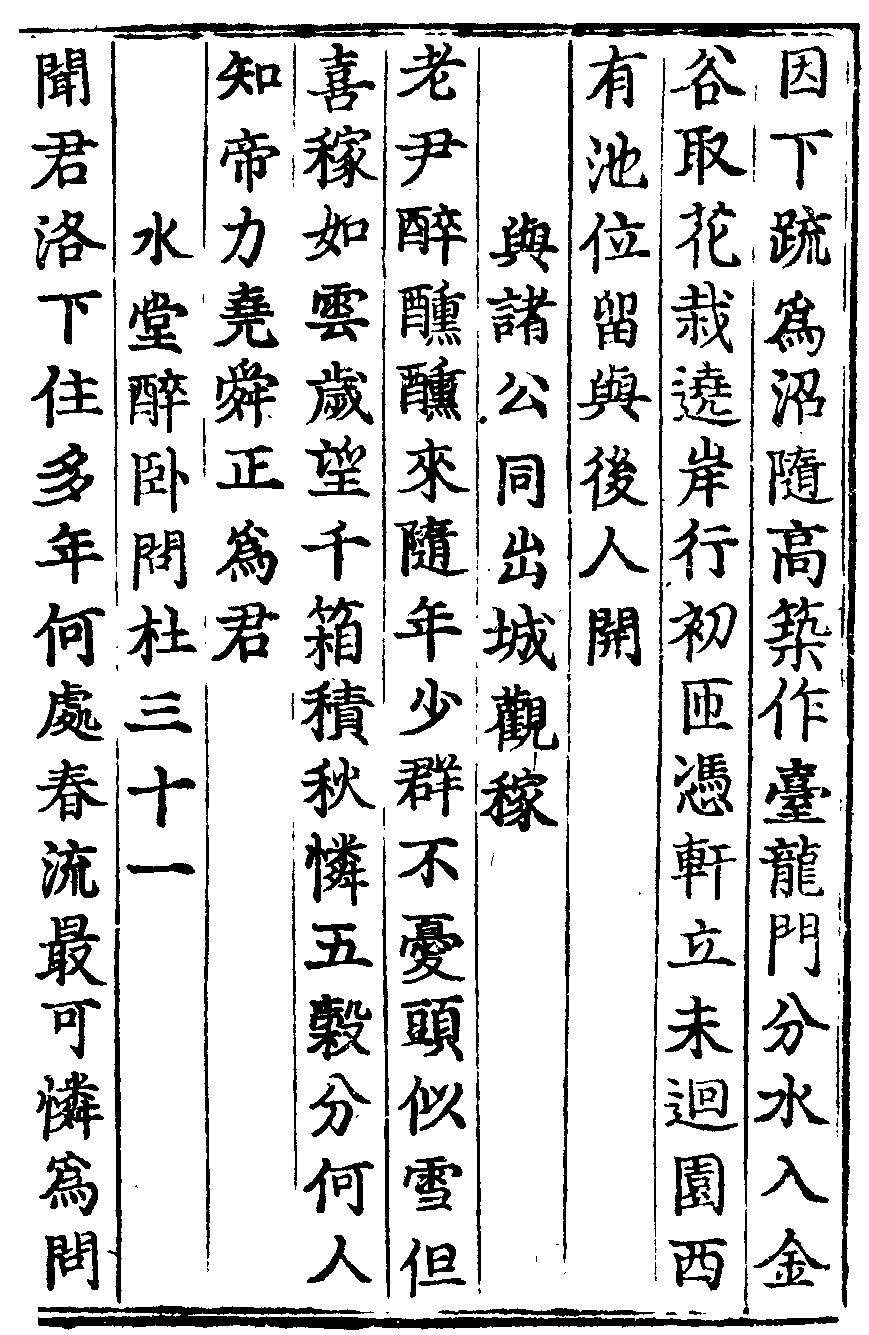 因下䟽爲沼隨高築作臺龍門分水入金
谷取花栽遶岸行初匝憑軒立未迴園西
有池位留與後人開
與諸公同出城觀稼
老尹醉醺醺來隨年少群不憂頭似雪但
喜稼如雲歲望千箱積秋憐五穀分何人
知帝力堯舜正爲君
水堂醉卧問杜三十一
聞君洛下住多年何處春流最可憐爲問